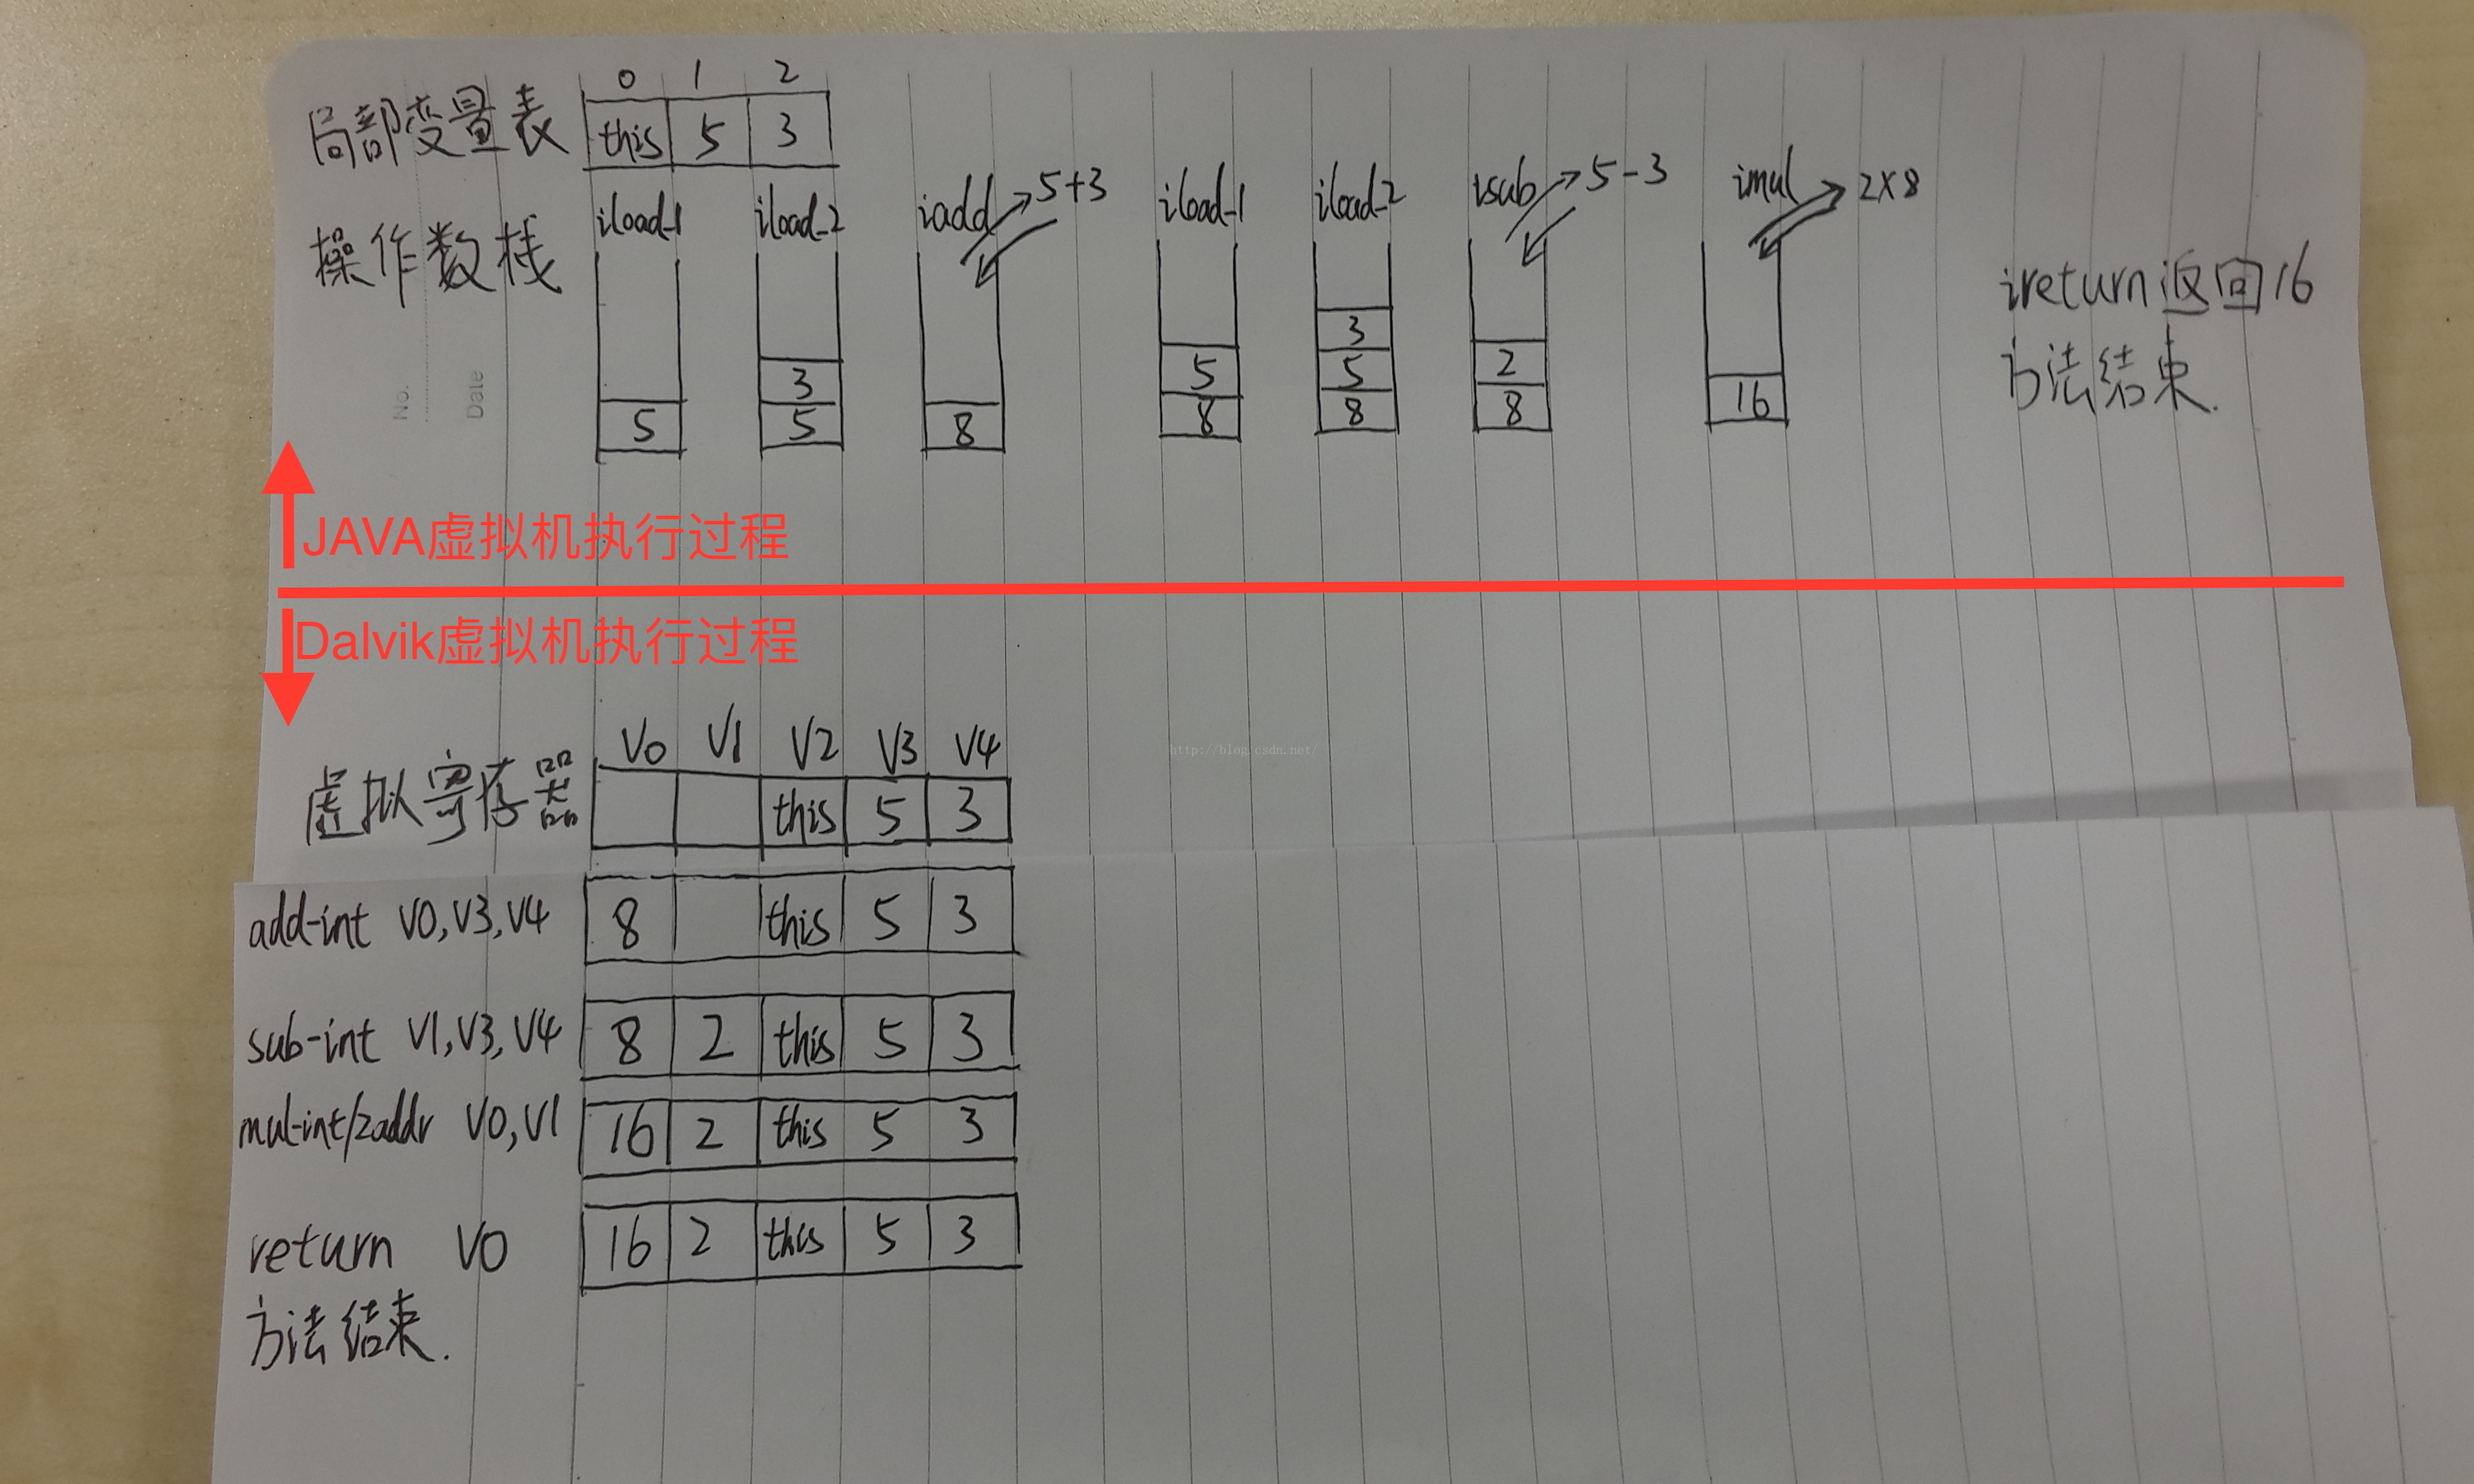 0 1 2
局部变量表 this 5 3
操作数栈 iload_1 iload_2 iadd 5+3 iload_1 iload_2 isub 5-3 imul 2×8
3
3 5 5 2
5 5 8 8 8 8 16
ireturn返回16
方法结束.
No.
Date
JAVA虚拟机执行过程
Dalvik虚拟机执行过程
http://blog.csdn.net/
V0 V1 V2 V3 V4
虚拟寄存器 this 5 3
add-int V0,V3,V4 8 this 5 3
sub-int V1,V3,V4 8 2 this 5 3
mul-int/2addr V0,V1 16 2 this 5 3
return V0 16 2 this 5 3
方法结束.